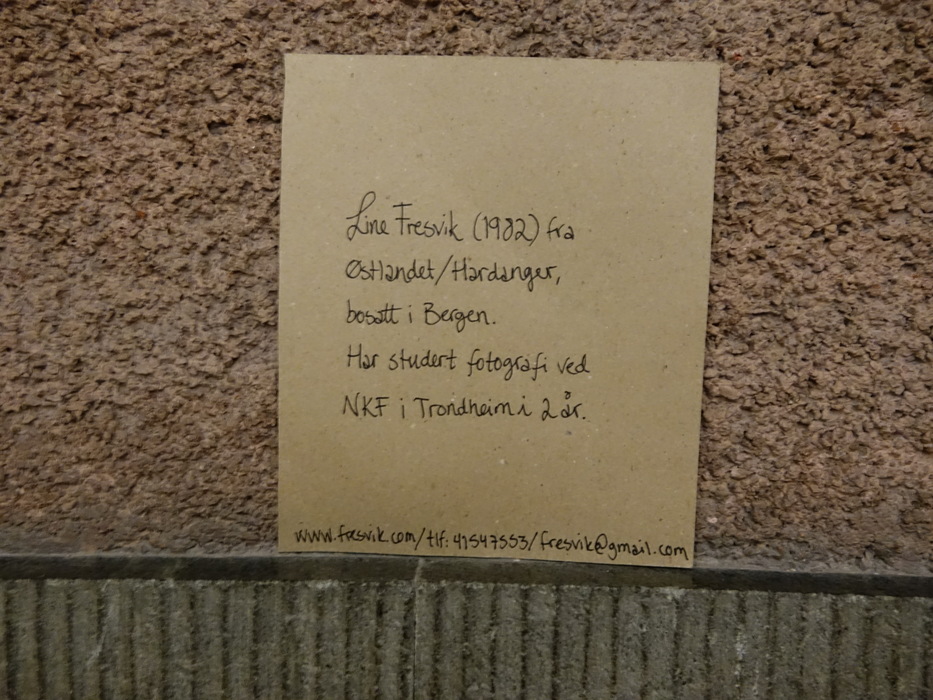 Line Fresvik (1982) fra
Østlandet/Hardanger,
bosatt i Bergen.
Har studert fotografi ved
NKF i Trondheim i 2 år.
www.fresvik.com/tlf: 41547553/fresvik@gmail.com